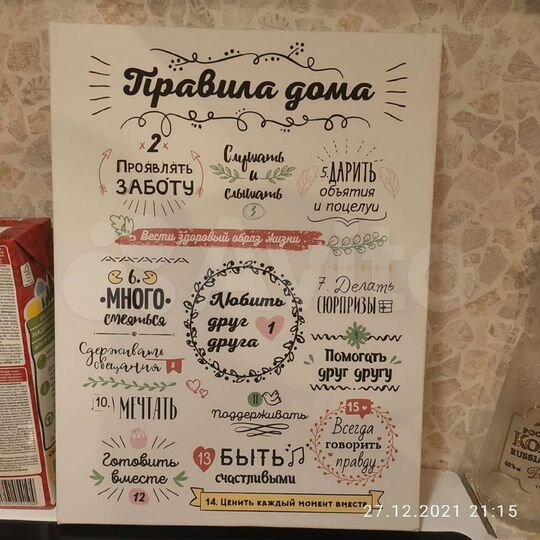 Правила дома
2
Проявлять
заботу
Слушать
и
слышать
3
5. Дарить
объятия
и поцелуи
Вести здоровый образ жизни
6.
Много
смеяться
Любить
друг
друга
1
7. Делать
сюрпризы
Сдерживать
обещания 8
Помогать
друг другу
10. Мечтать
11
Поддерживать
15
Всегда
говорить
правду
Готовить
вместе
12
13 Быть
счастливыми
14. Ценить каждый момент вместе
Avito
27.12.2021 21:15